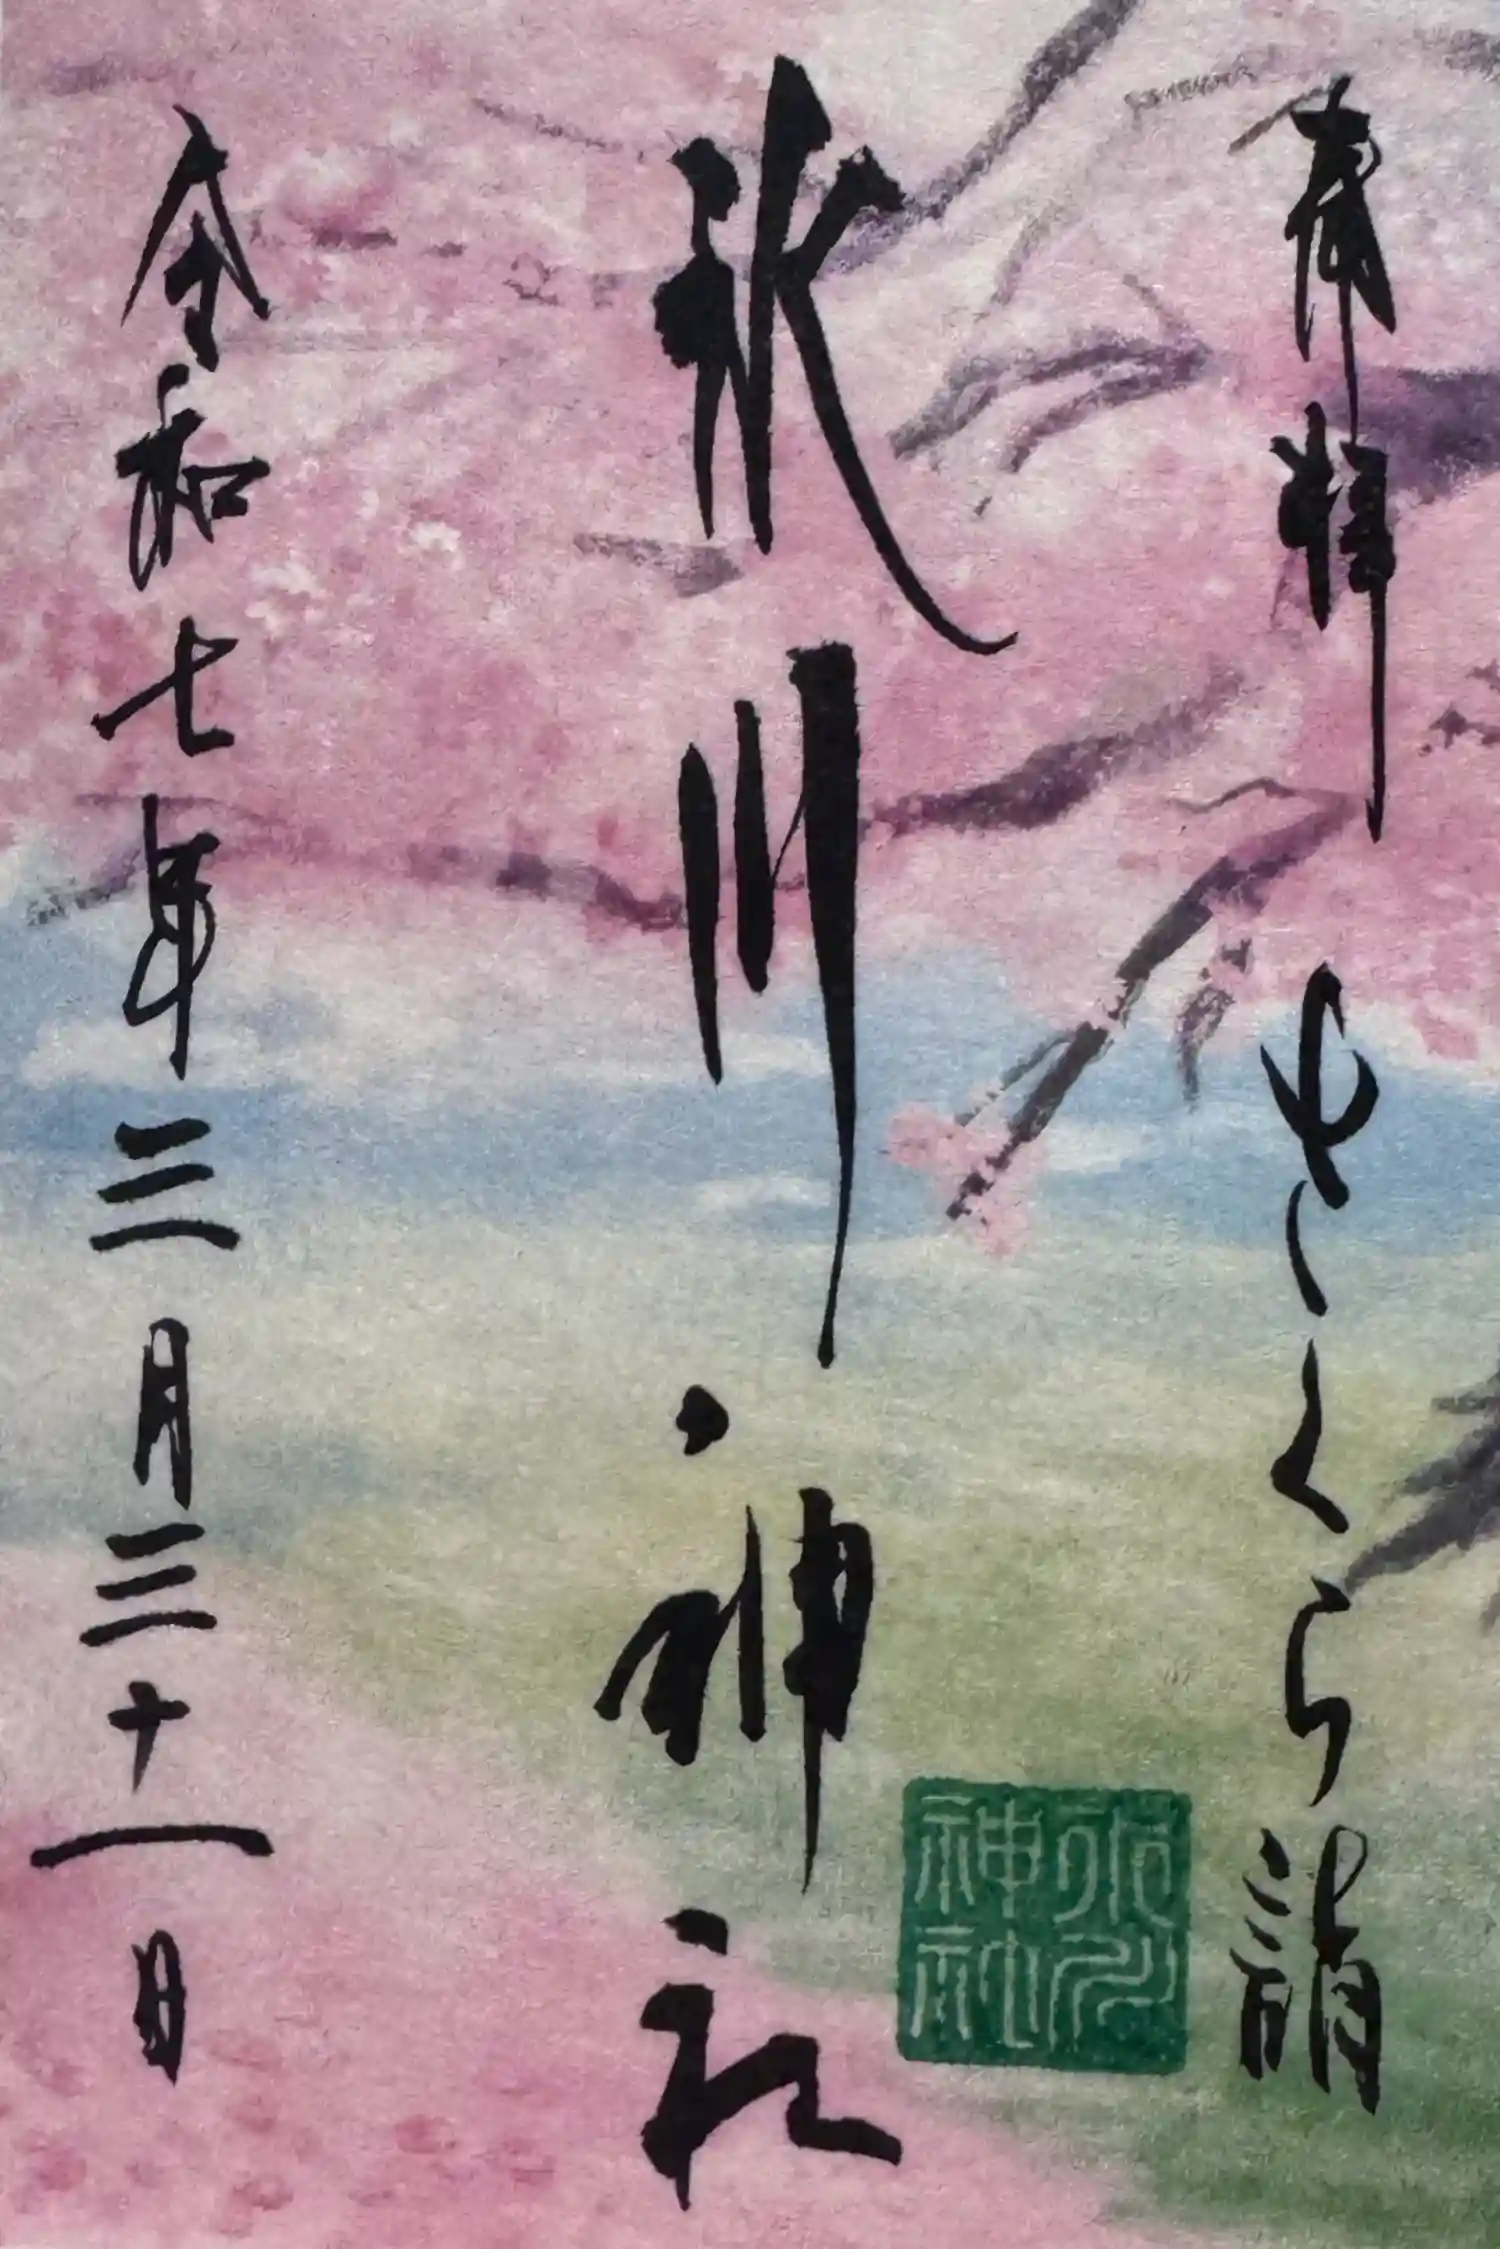 奉拝 さくら詣
氷川神社
氷川神社
令和七年三月三十一日